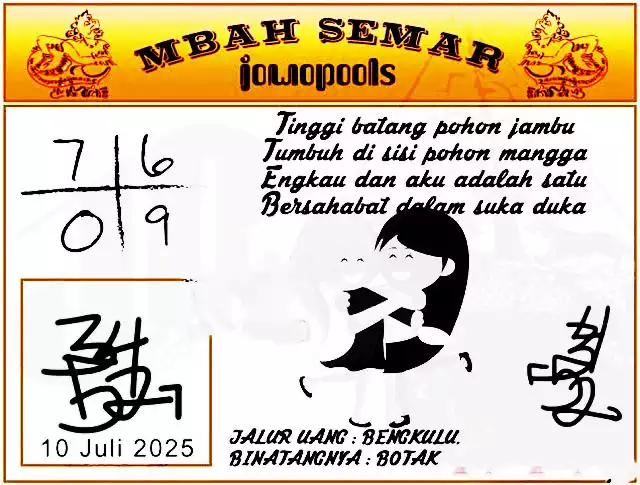 MBAH SEMAR
jowopools
7 6
0 9
Tinggi batang pohon jambu
Tumbuh di sisi pohon mangga
Engkau dan aku adalah satu
Bersahabat dalam suka duka
10 Juli 2025
JALUR UANG : BENGKULU.
BINATANGNYA : BOTAK